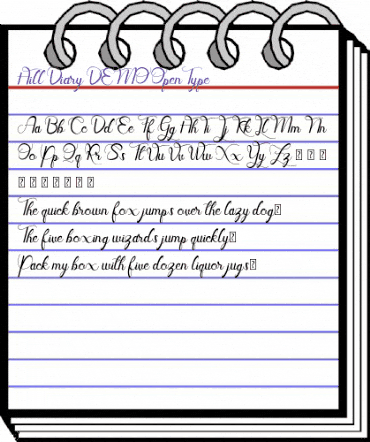 Hill Diary DEMO Open Type
Aa Bb Cc Dd Ee Ff Gg Hh Ii Jj Kk Ll Mm Nn
Oo Pp Qq Rr Ss Tt Uu Vv Ww Xx Yy Zz
The quick brown fox jumps over the lazy dog
The five boxing wizards jump quickly
Pack my box with five dozen liquor jugs